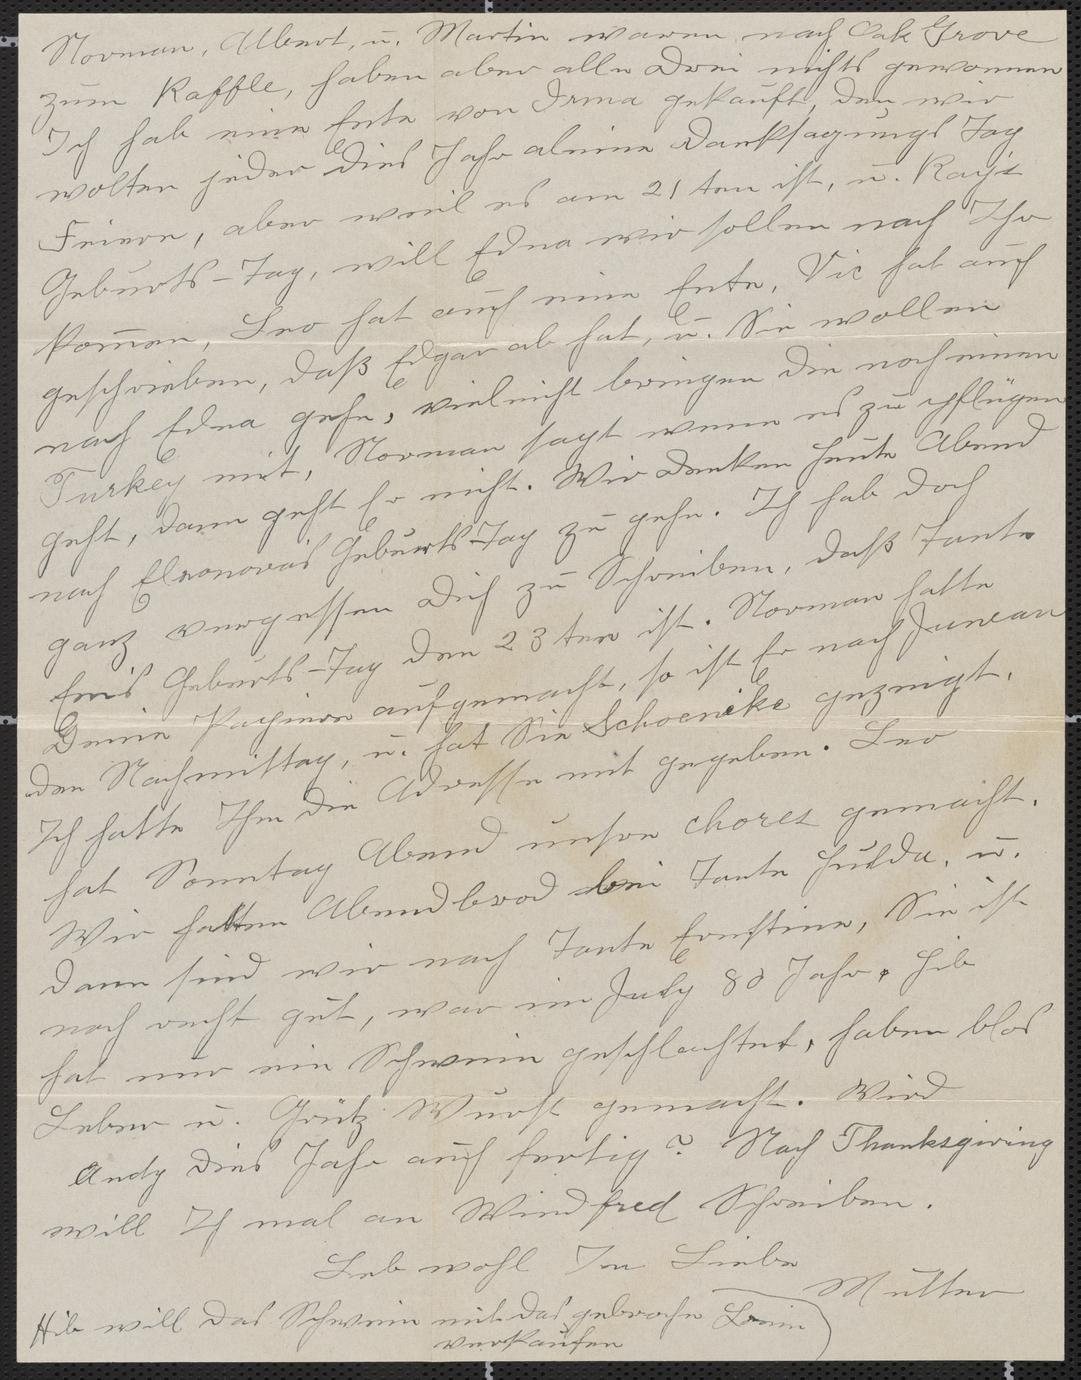 Norman, Albert, u. Martin waren nach Oak Grove
zum Raffle, haben aber alle drei nichts gewonnen
Ich hab eine Ente von Irma gekauft, den wir
wolten jeder dies Jahr aleine Danksagungs Tag
Feiern, aber weil es am 21 ten ist, u. Ray's
Geburts-Tag, will Edna wir sollen nach Ihr
kom̄en, Leo hat auch eine Ente, Vic hat auch
geschrieben, daß Edgar ab hat, u. Sie wollen
nach Edna gehe, vieleicht bringen die noch einen
Turkey mit, Norman sagt wenn es zu pflügen
geht, dann geht Er nicht. Wir denken heute Abend
nach Eleonora's Geburts-Tag zu gehe. Ich hab doch
ganz vergessen Dich zu Schreiben, daß Tante
Em's Geburts-Tag den 23 ten ist. Norman hatte
Deine Papiere aufgemacht, so ist Er nach Juneau
den Nachmittag, u. hat Sie Schoeneke gezeigt.
Ich hatte Ihm die Adresse mit gegeben. Leo
hat Sonntag Abend unsre chores gemacht.
Wir hatten Abendbrod bei Tante Hulda, u.
dann sind wir nach Tante Ernstine, Sie ist
noch recht gut, war im July 80 Jahr. Hib
hat nur ein Schwein geschlachtet, haben blos
Leber u. Grütz Wurst gemacht. Wird
Andy dies Jahr auch fertig? Nach Thanksgiving
will Ich mal an Windfred Schreiben.
Leb wohl In Liebe
Mutter
Hib will das Schwein mit das gebroche Bein
verkaufen